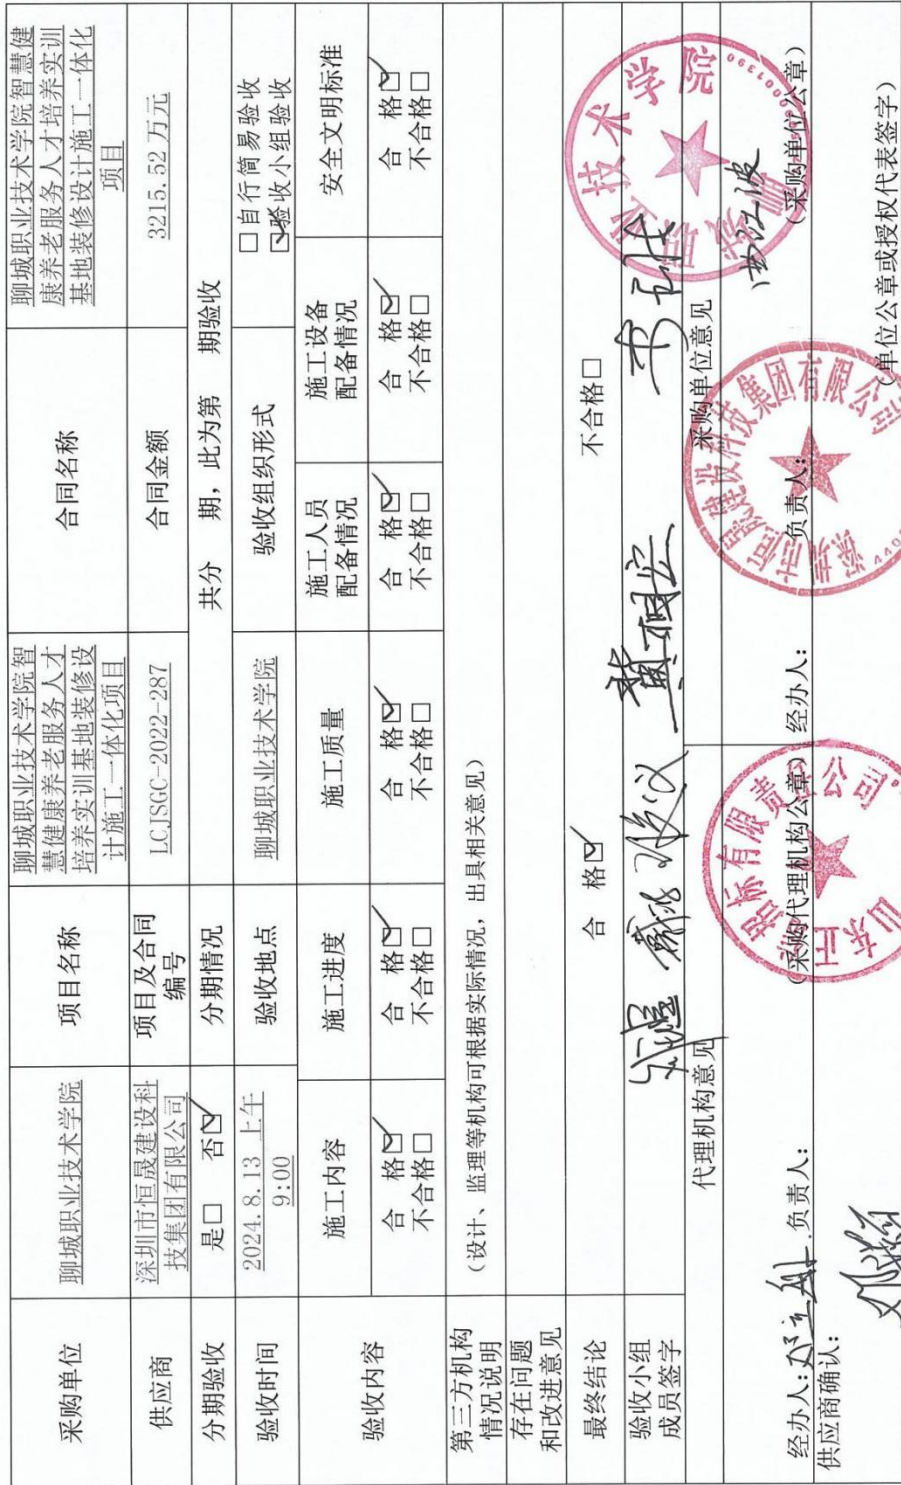 采购单位
聊城职业技术学院
项目名称
聊城职业技术学院智
慧健康养老服务人才
培养实训基地装修设
计施工一体化项目
合同名称
聊城职业技术学院智慧健
康养老服务人才培养实训
基地装修设计施工一体化
项目
供应商
深圳市恒晟建设科
技集团有限公司
项目及合同
编号
LCJSGC-2022-287
合同金额
3215.52万元
分期验收
是□ 否☑
分期情况
共分 期，此为第 期验收
验收时间
2024.8.13 上午
9:00
验收地点
聊城职业技术学院
验收组织形式
□自行简易验收
☑验收小组验收
验收内容
施工内容
施工进度
施工质量
施工人员
配备情况
施工设备
配备情况
安全文明标准
合 格☑
不合格□
合 格☑
不合格□
合 格☑
不合格□
合 格☑
不合格□
合 格☑
不合格□
合 格☑
不合格□
第三方机构
情况说明
（设计、监理等机构可根据实际情况，出具相关意见）
存在问题
和改进意见
最终结论
合 格☑
不合格□
验收小组
成员签字
代理机构意见
采购单位意见
经办人：
负责人：
（采购代理机构公章）
经办人：
负责人：
（采购单位公章）
供应商确认：
（单位公章或授权代表签字）
聊城职业技术学院
深圳市恒晟建设科技集团有限公司